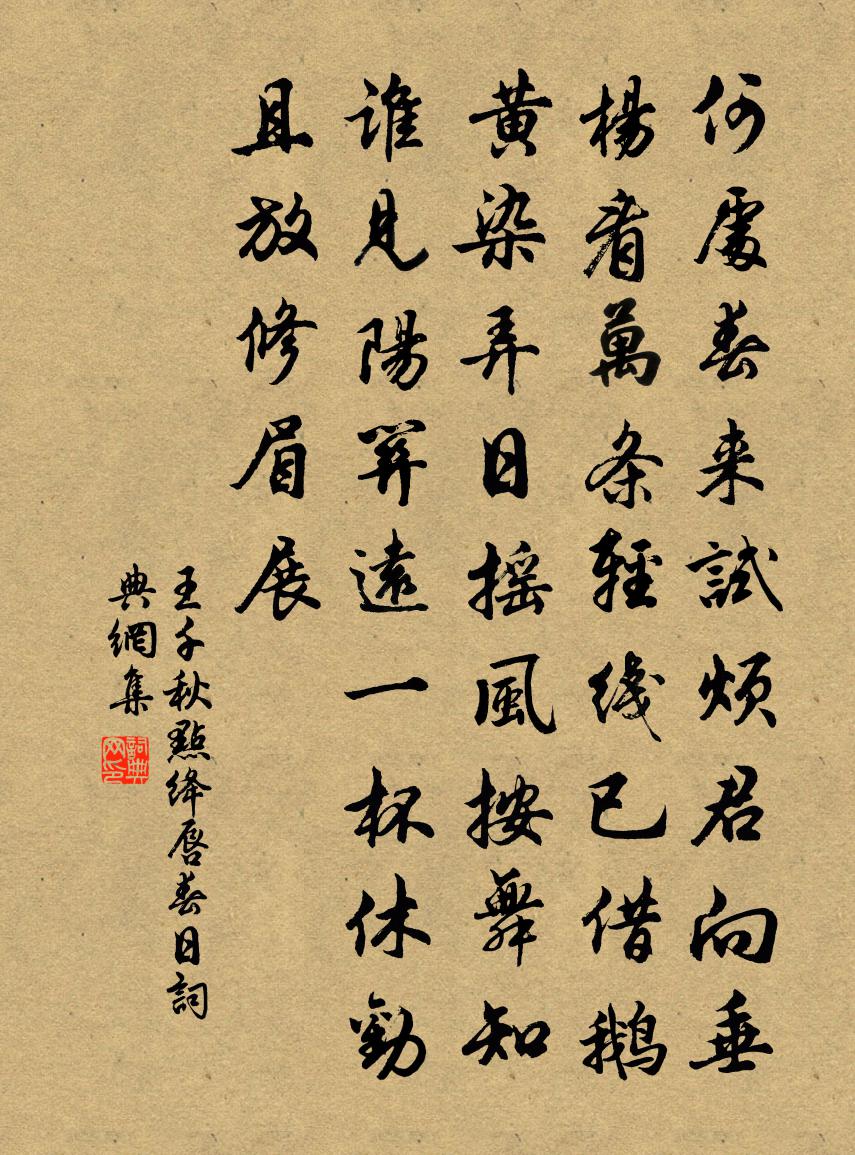 何處春来試煩君向垂
楊看萬条輕綫已借鹅
黄染弄日摇風按舞知
誰見陽關遠一杯休勸
且放修眉展
王千秋點絳唇春日詞
典網集
詞典網印